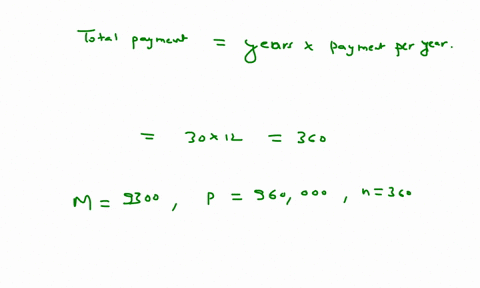 Total payment = years × payment per year.
= 30×12 = 360
M = 9300, P = 960,000, n=360